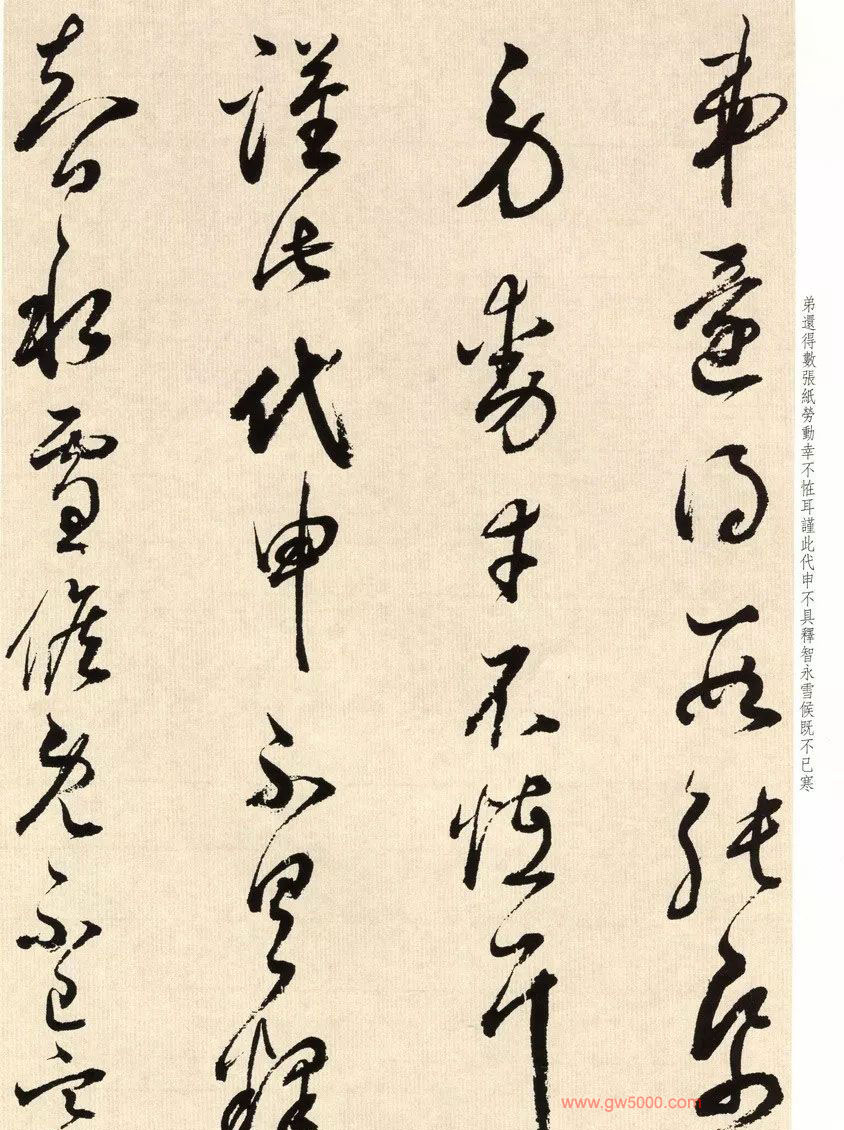 弟還得數張紙
勞動幸不恠耳
謹此代申不具釋
智永雪候既不已寒
弟還得數張紙勞動幸不恠耳謹此代申不具釋智永雪候既不已寒
www.gw5000.com